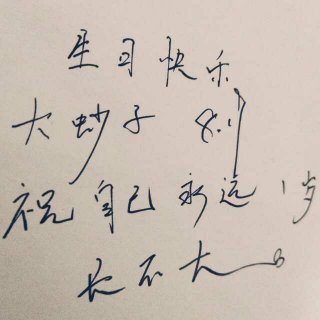 生日快乐
大妙子
祝自己永远1岁
长不大。